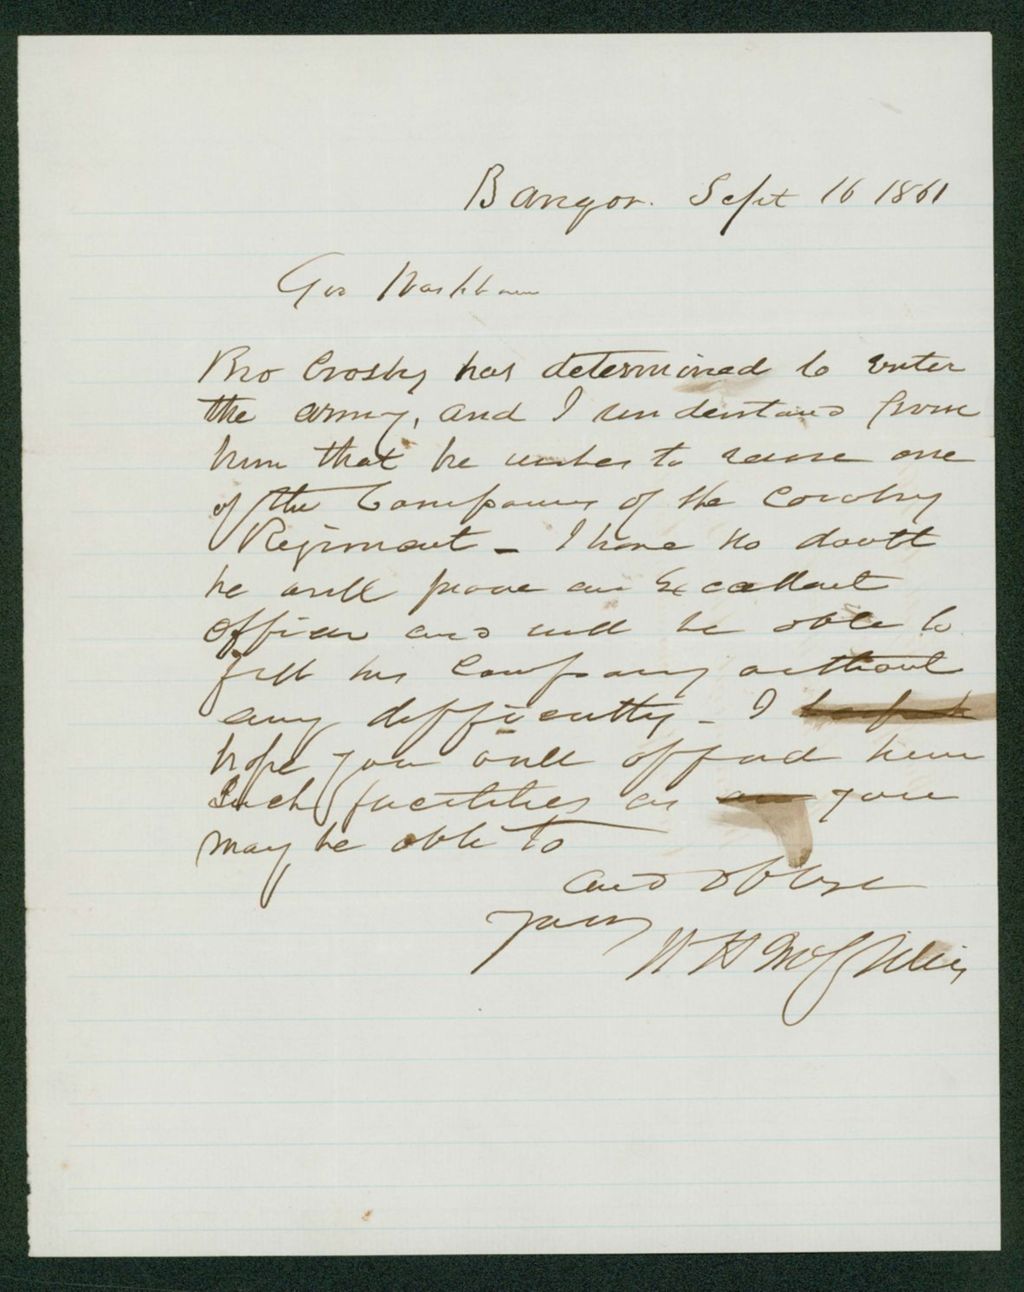 Bangor. Sept 16 1861
Gov Washburn
Bro Crosby has determined to enter
the army, and I understand from
him that he wishes to raise one
of the Companies of the Cavalry
Regiment – I have no doubt
he will prove an Excellent
officer and will be able to
fill his Company without
any difficulty – I
hope you will afford him
Such facilities as you
may be able to
and oblige
yours
W H McCrillis